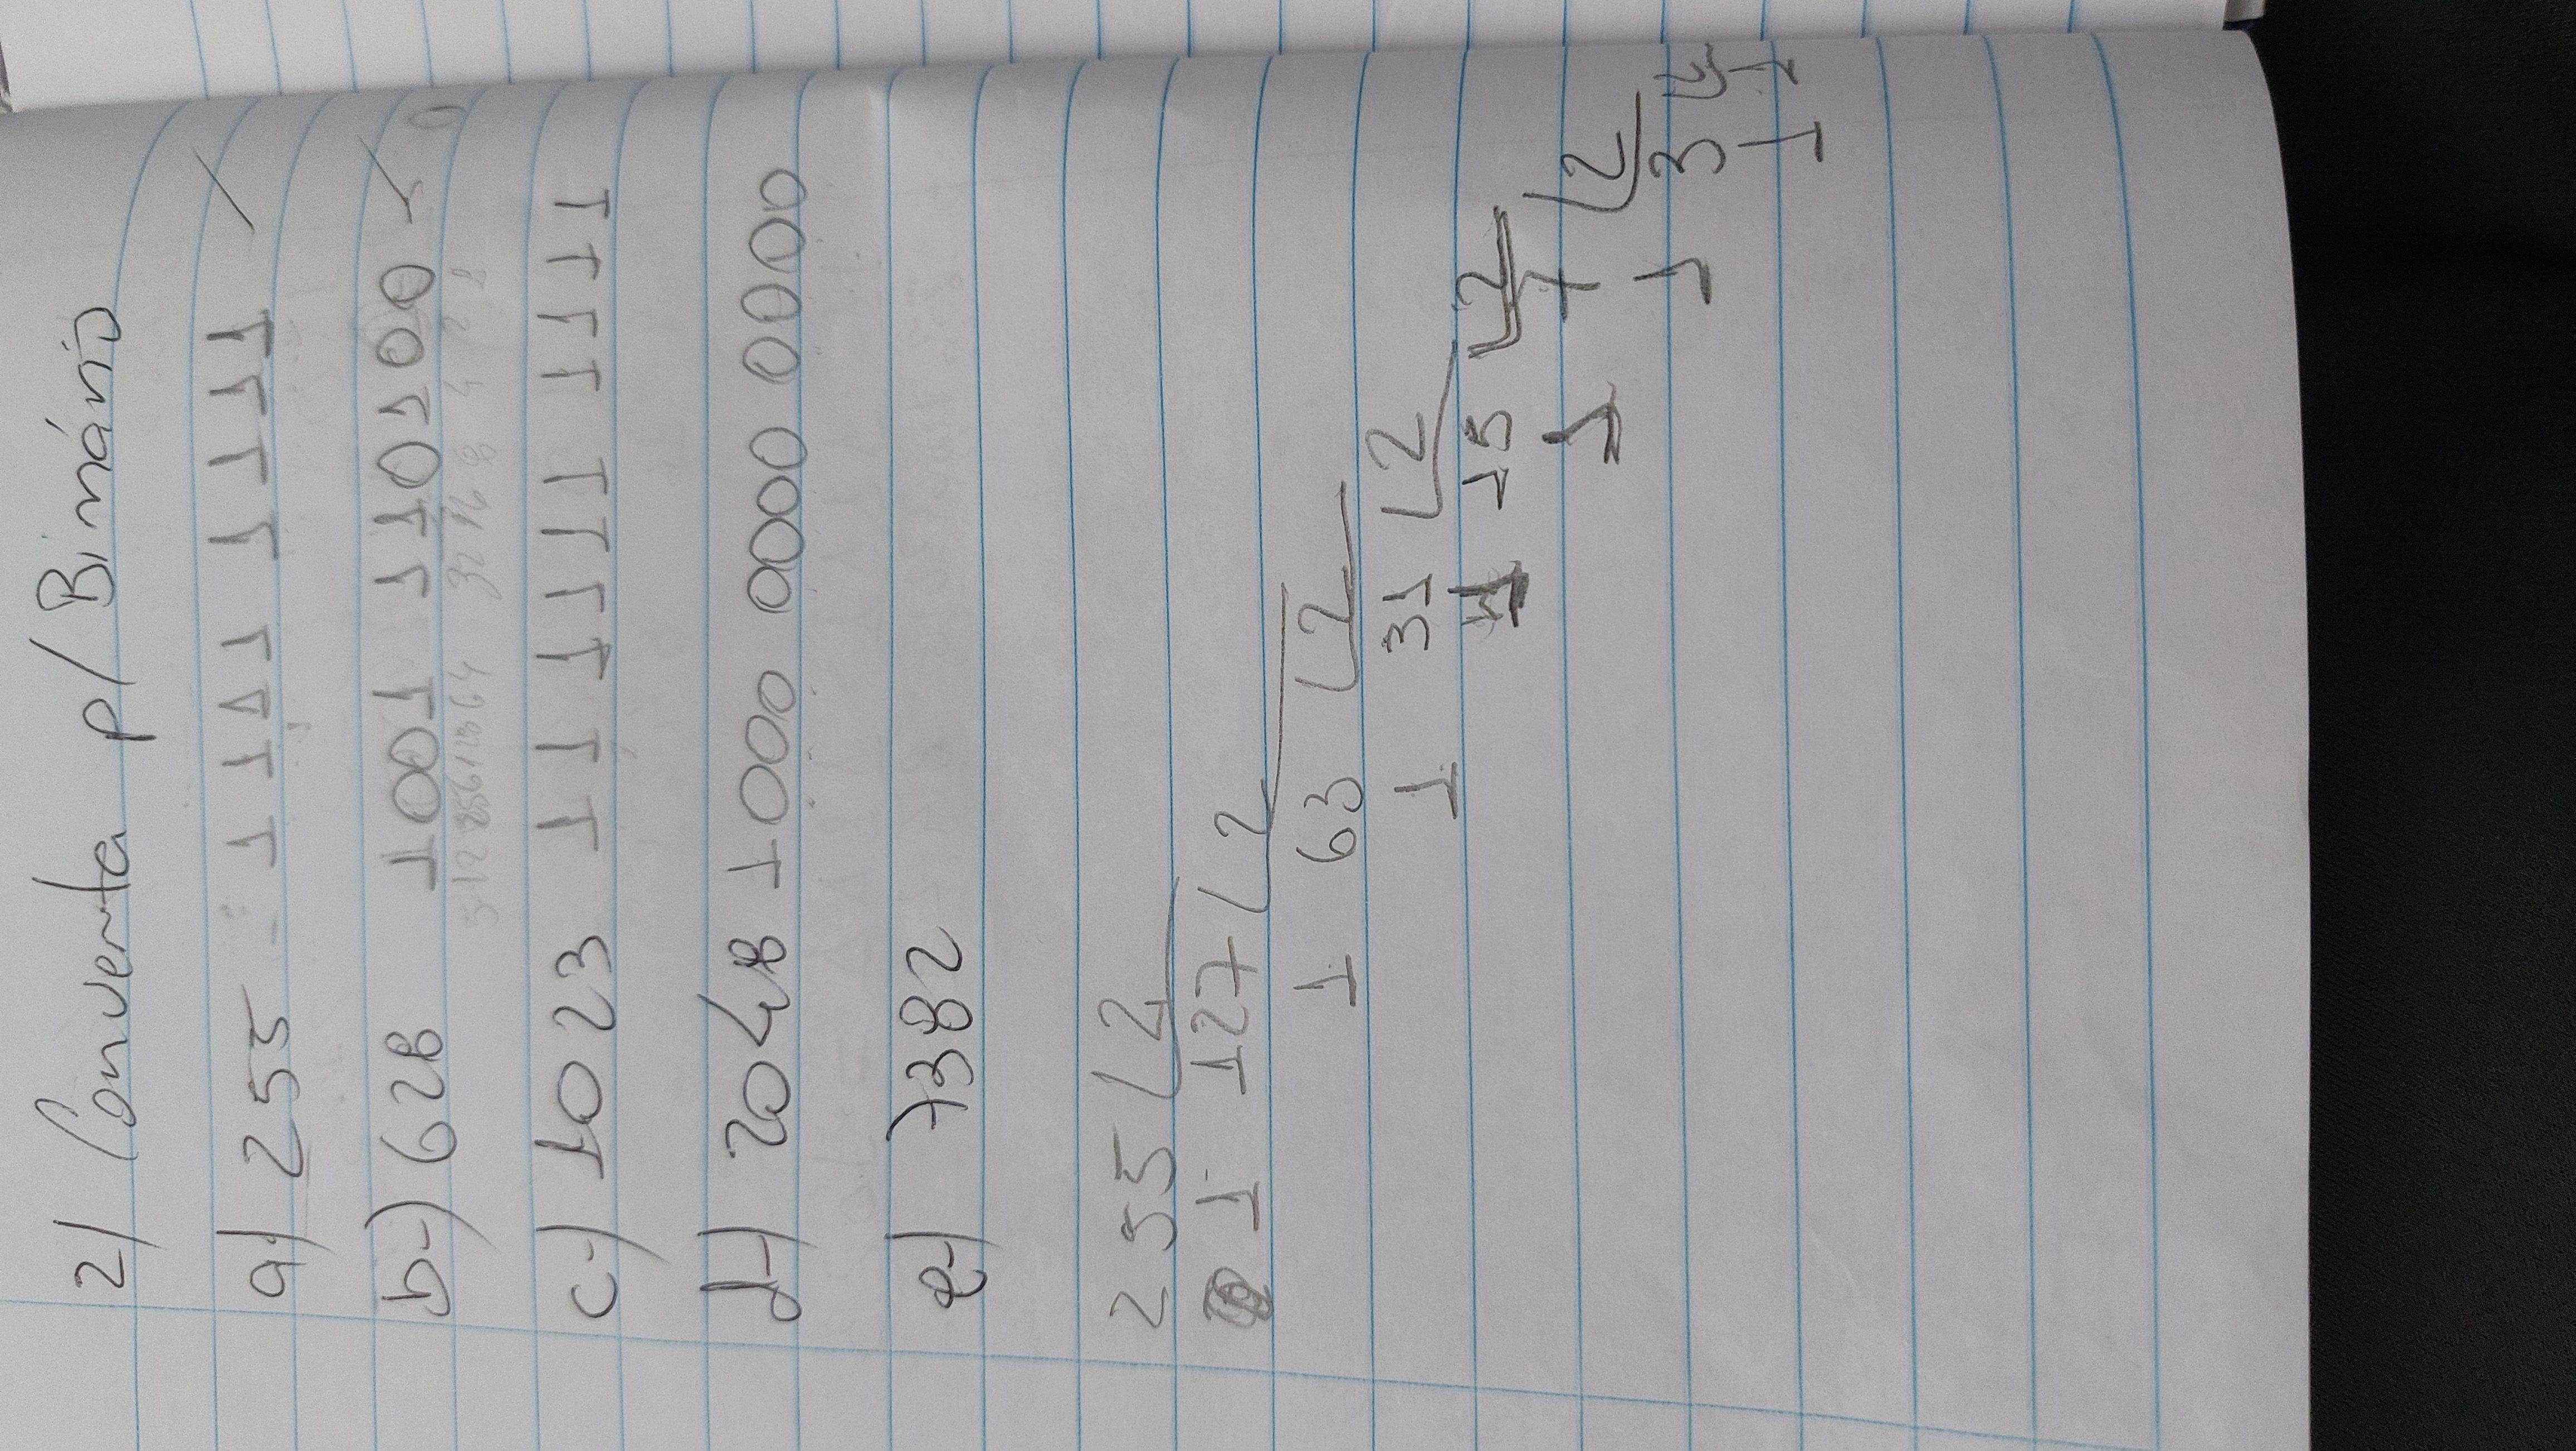 2) Converta p/ Binário
a) 255 - 1111 1111
b-) 628 1001 110100
512 256 128 64 32 16 8 4 2 1
c-) 1023 11 1111 1111
d-) 2048 1000 0000 0000
e-) 7382
255 2
1 127 2
1 63 2
1 31 2
1 15 2
1 7 2
1 3 2
1 1